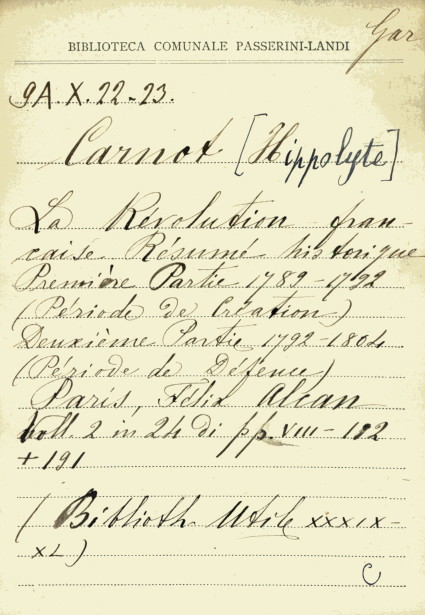 Gar
BIBLIOTECA COMUNALE PASSERINI-LANDI
9A.X.22-23.
Carnot [Hippolyte]
La Révolution fran-
caise Résumé historique
Première Partie 1789-1792
(Période de Création)
Deuxième Partie 1792-1804
(Période de Défence)
Paris, Félix Alcan
Voll. 2 in 24 di pp. VIII-192
+ 191
(Biblioth. Utile XXXIX-
XL)
C